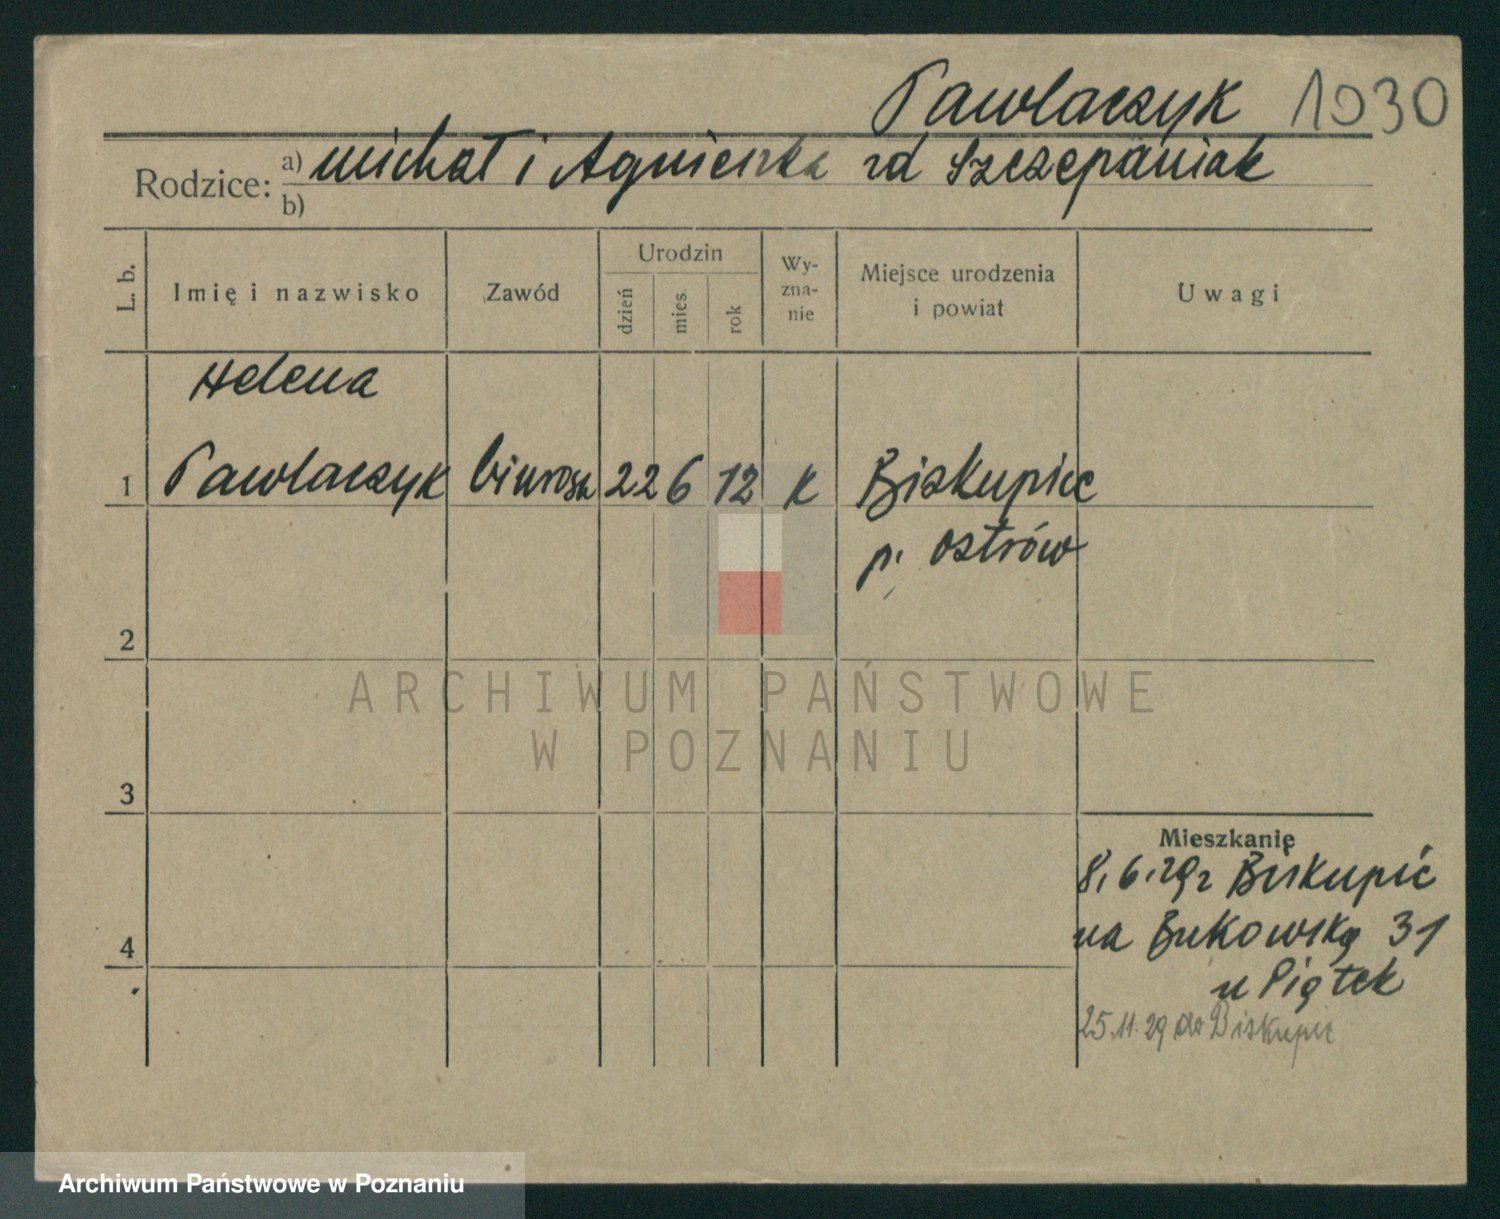 Pawlaczyk 1930
Rodzice: a) Michał i Agnieszka zd Szczepaniak
b)
L. b.
Imię i nazwisko
Zawód
Urodzin
dzień
mies.
rok
Wy-
zna-
nie
Miejsce urodzenia
i powiat
Uwagi
Helena
1 Pawlaczyk biurosł 22 6 12 k Biskupice
p. Ostrów
2
ARCHIWUM PAŃSTWOWE
W POZNANIU
3
Mieszkanie
8.6.29 z Biskupic
na Bukowską 31
4
u Piątek
25.11.29 do Biskupic
Archiwum Państwowe w Poznaniu